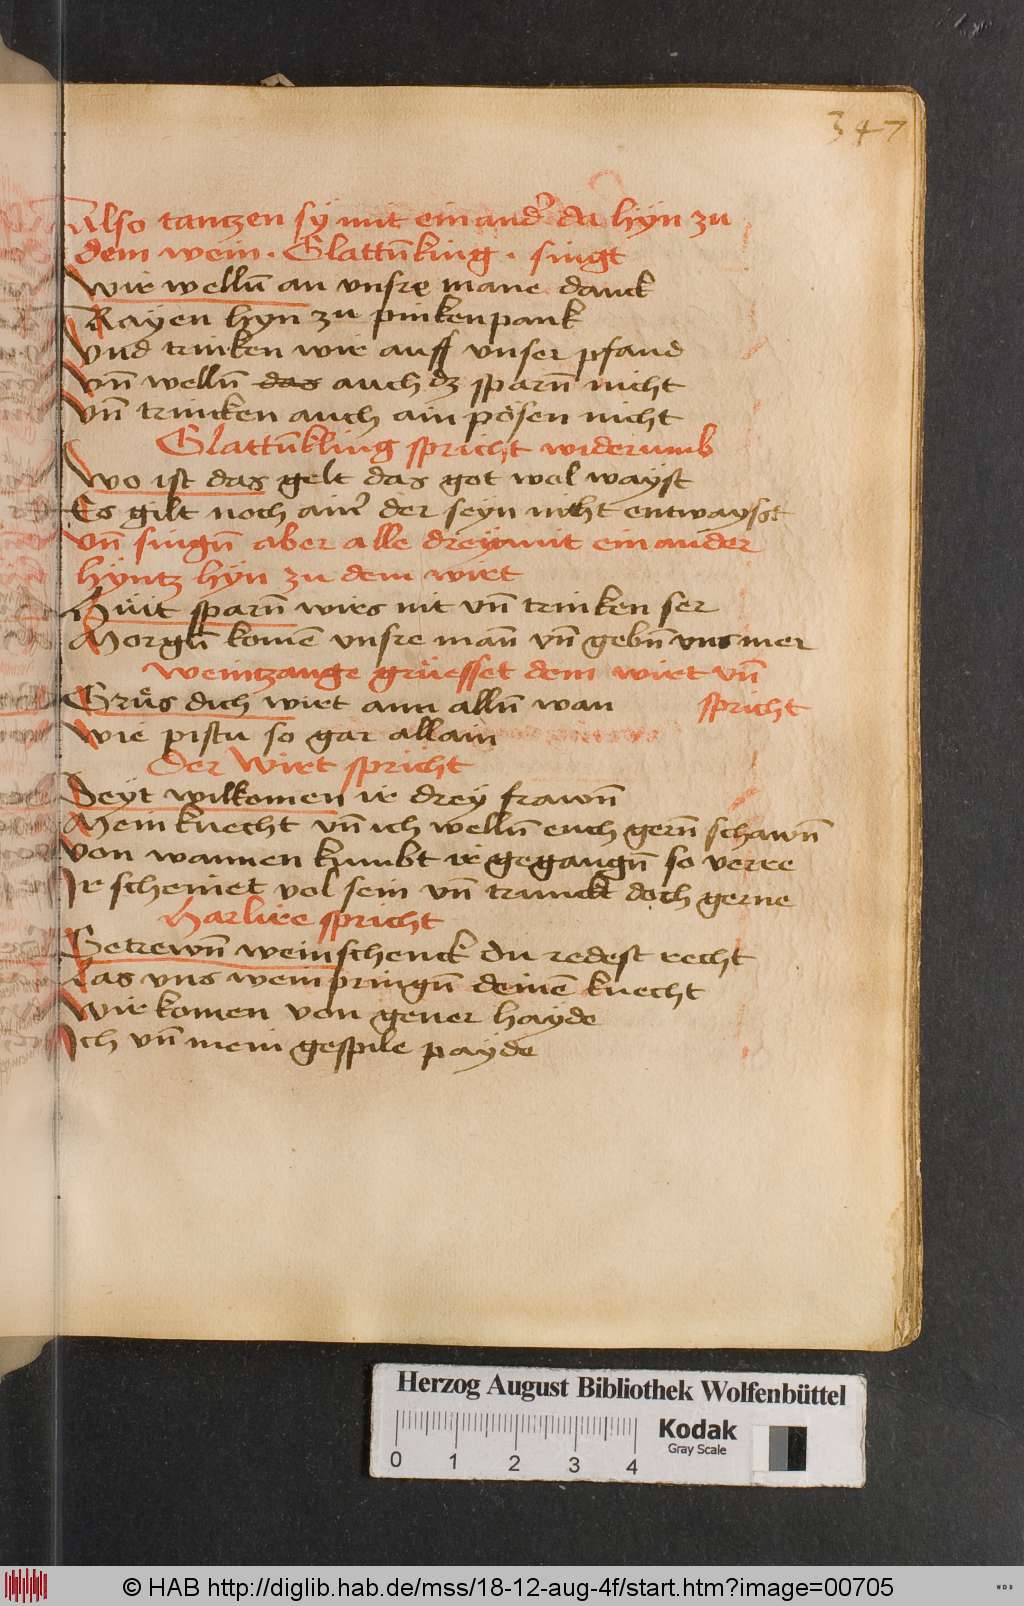 347
Also tantzen sÿ mit ein and' da hÿn zu
dem wein . Glattn̄king . singt
Wir welln̄ an vnsre mane danck
Rayen hyn zu pinkenpank
Vnd trinken wir auff vnser pfand
Vn̄ welln̄ das auch dz sparn̄ nicht
Vn̄ trincken auch ain pösen nicht
Glattn̄kling spricht widerumb
Wo ist das gelt das got wol wayst
Es gilt noch ain' der seyn nicht entwaysst
Vn̄ singn̄ aber alle dreÿ mit ein ander
hÿntz hÿn zu dem wirt
Hu̇it sparn̄ wirs nit vn̄ trinken ser
Morgn̄ komē vnsre man̄ vn̄ gebn̄ vns mer
Weintzange grüesset dem wirt vn̄
spricht
Grůs dich wirt ann alln̄ wan
Wie pistu so gar allain
Der Wirt spricht
Seyt wilkomen ir drey frawn̄
Mein knecht vn̄ ich welln̄ euch gern̄ schawn̄
Von wannen kumbt ir gegangn̄ so verre
Ir scheinet vol sein vn̄ trunckt doch gerne
Harlire spricht
Getrewn̄ weinschenck du redest recht
Las vns wein pringn̄ deinē knecht
Wir komen von gener hayde
Ich vn̄ mein gespile payde
Herzog August Bibliothek Wolfenbüttel
Kodak
Gray Scale
0 1 2 3 4
© HAB http://diglib.hab.de/mss/18-12-aug-4f/start.htm?image=00705
WDB